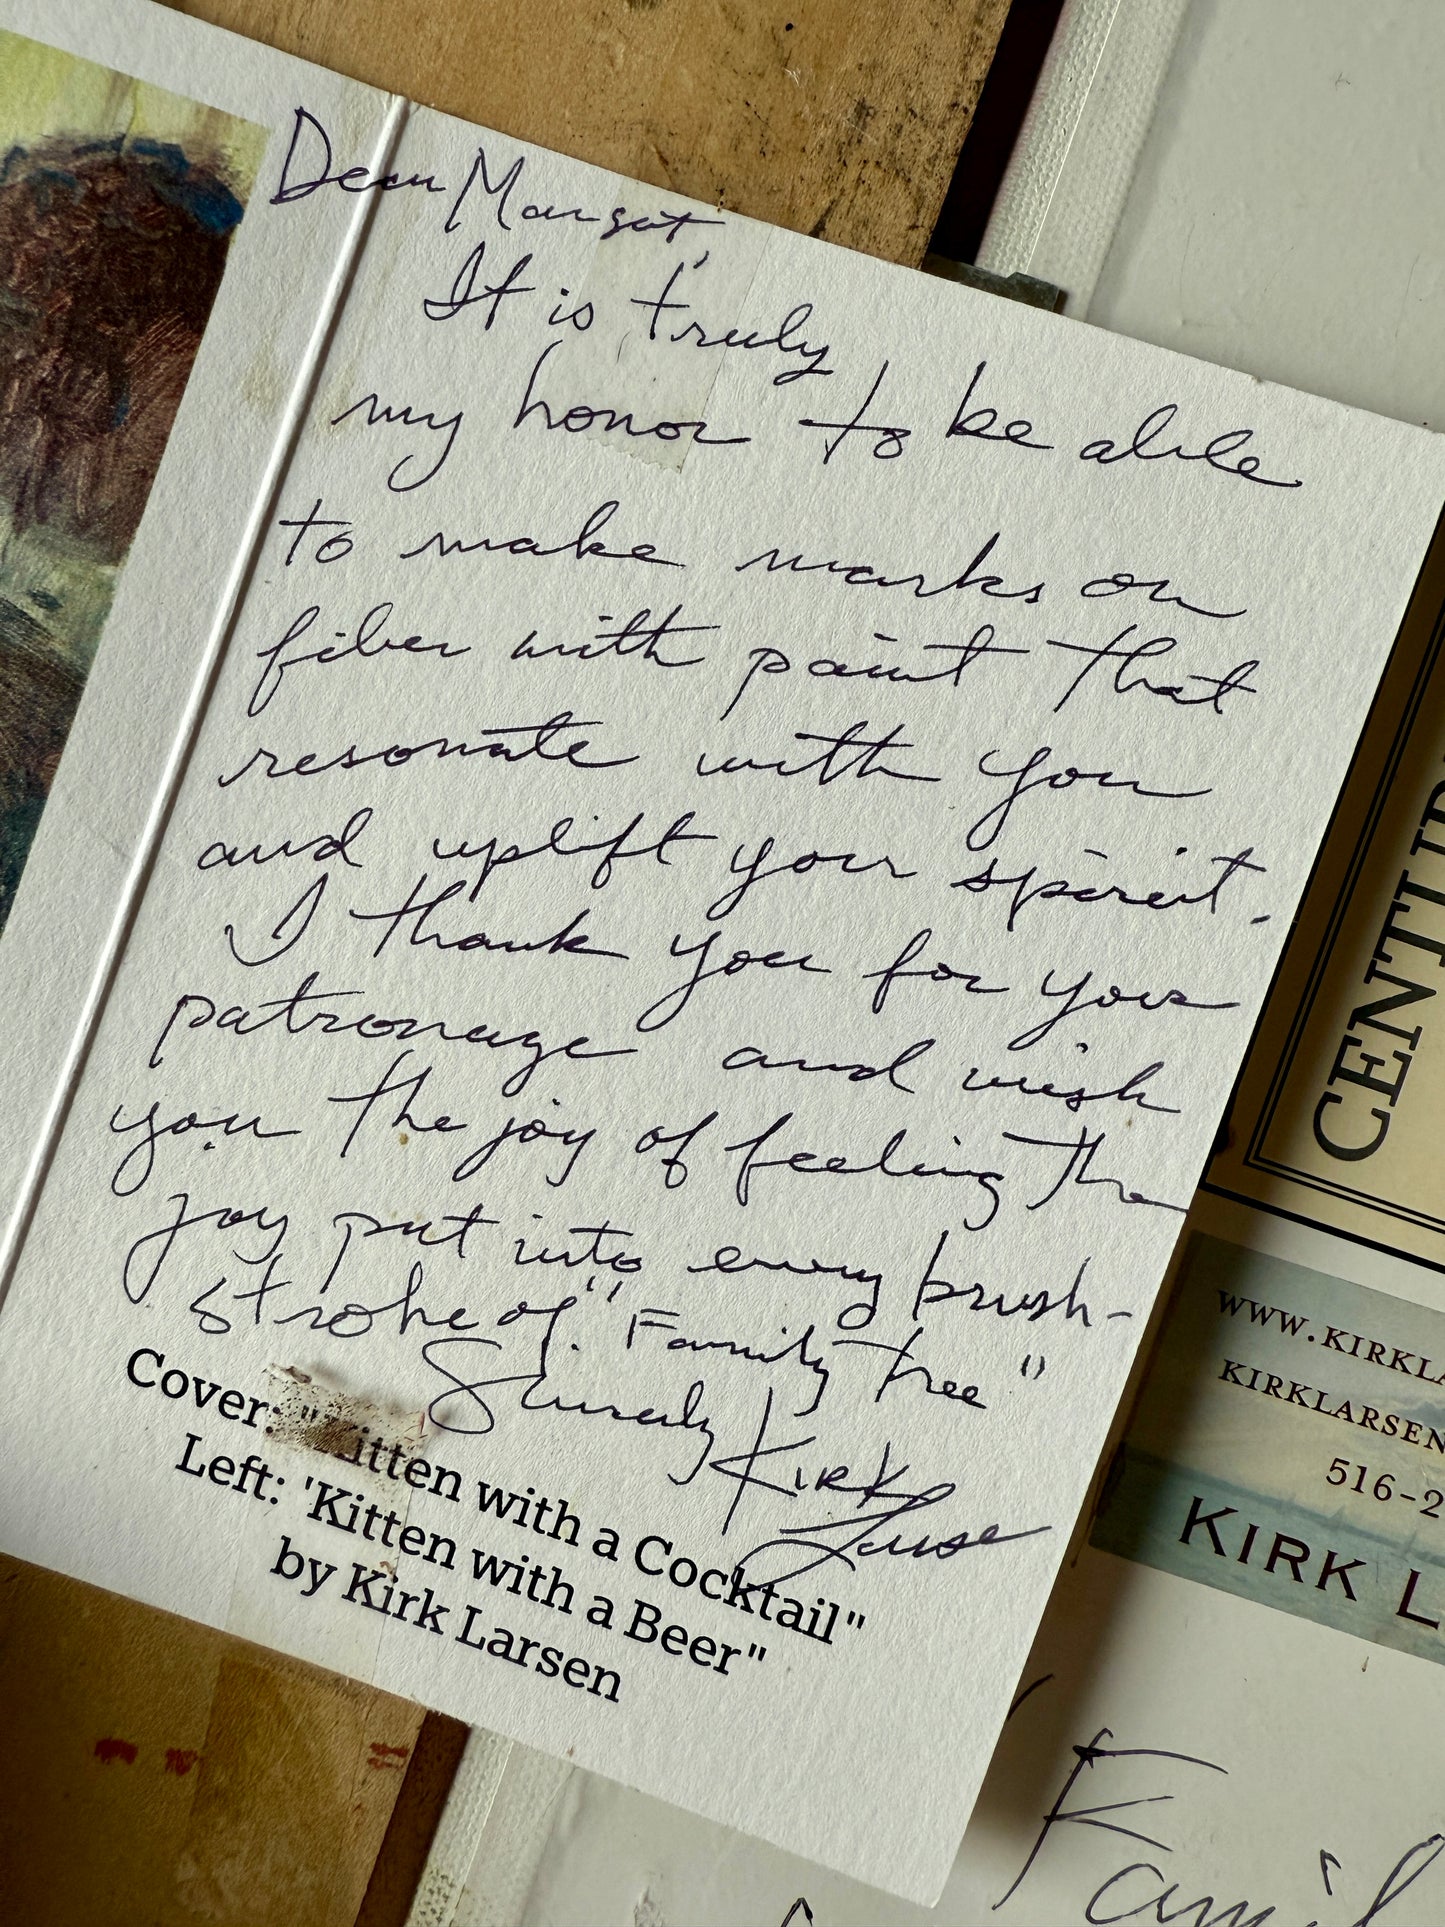 Dear Margot,
It is truly
my honor to be able
to make marks on
fiber with paint that
resonate with you
and uplift your spirit.
I thank you for your
patronage and wish
you the joy of feeling the
joy put into every brush-
stroke of "Family Tree"
Sincerely
Kirk
Larsen
Cover: "Kitten with a Cocktail"
Left: 'Kitten with a Beer"
by Kirk Larsen
WWW.KIRKLA
KIRKLARSEN
516-2
KIRK L
Famil